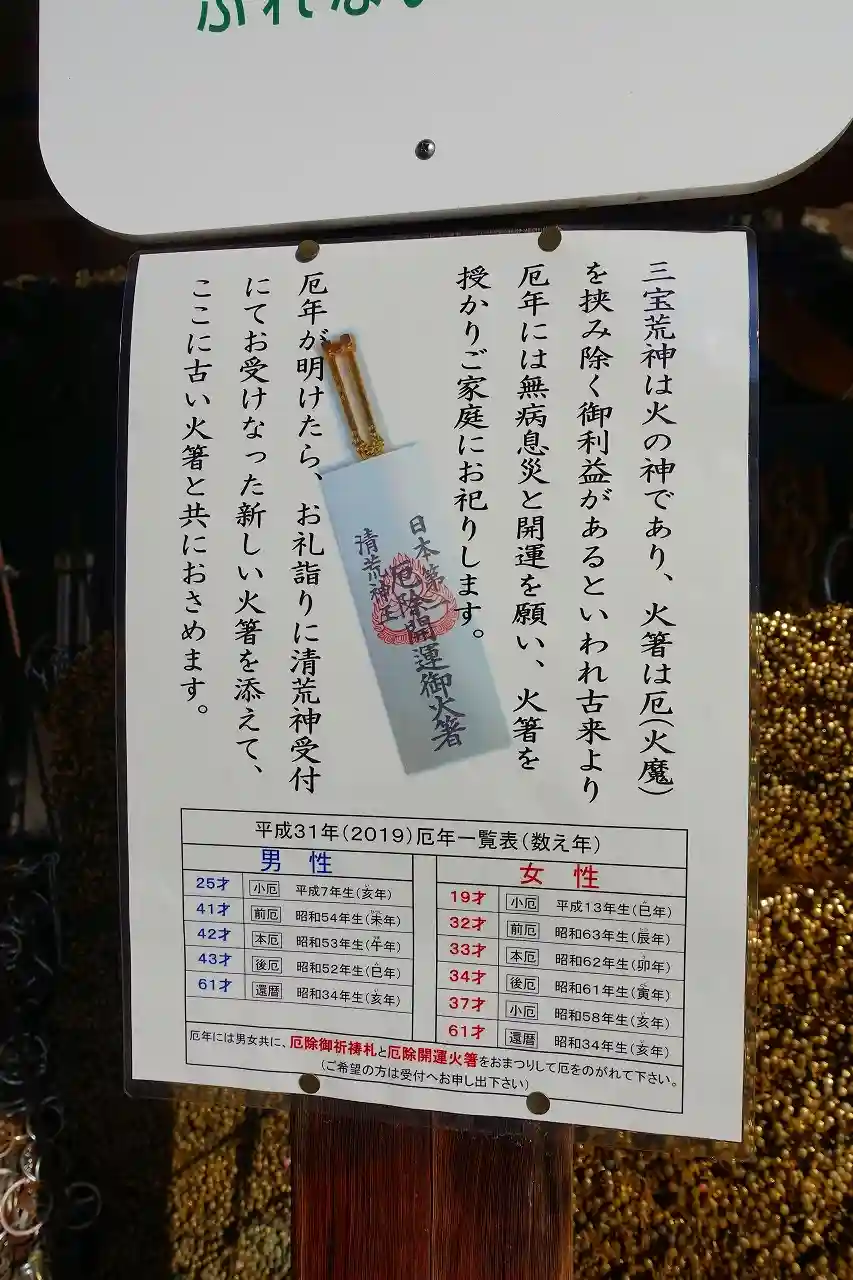 三宝荒神は火の神であり、火箸は厄(火魔)
を挟み除く御利益があるといわれ古来より
厄年には無病息災と開運を願い、火箸を
授かりご家庭にお祀りします。
日本第一
厄除開運御火箸
清荒神王
厄年が明けたら、お礼詣りに清荒神受付
にてお受けなった新しい火箸を添えて、
ここに古い火箸と共におさめます。
平成31年(2019)厄年一覧表(数え年)
男性
25才 小厄 平成7年生(亥年)
41才 前厄 昭和54年生(未年)
42才 本厄 昭和53年生(午年)
43才 後厄 昭和52年生(巳年)
61才 還暦 昭和34年生(亥年)
女性
19才 小厄 平成13年生(巳年)
32才 前厄 昭和63年生(辰年)
33才 本厄 昭和62年生(卯年)
34才 後厄 昭和61年生(寅年)
37才 小厄 昭和58年生(亥年)
61才 還暦 昭和34年生(亥年)
厄年には男女共に、厄除御祈祷札と厄除開運火箸をおまつりして厄をのがれて下さい。
(ご希望の方は受付へお申し出下さい)